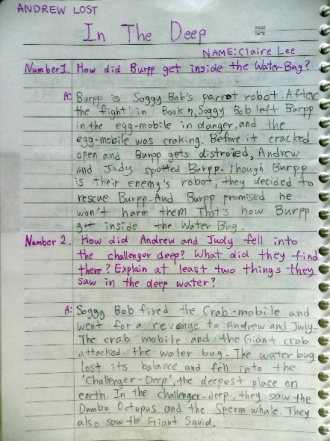 ANDREW LOST
In The Deep
NAME: Claire Lee
Number 1. How did Burpp get inside the Water Bug?
A: Burpp is Soggy Bob's parrot robot. After
the "fight" in Book 7, Soggy Bob left Burpp
in the egg-mobile in danger, and the
egg-mobile was craking. Before it cracked
open and Burpp gets distroied, Andrew
and Judy spotted Burpp. Though Burpp
is their enemy's robot, they decided to
rescue Burpp. And Burpp promised he
won't harm them That's how Burpp
get inside the Water Bug.
Number 2. How did Andrew and Judy fell into
the challenger deep? What did they find
there? Explain at least two things they
saw in the deep water?
A: Soggy Bob fixed the Crab-mobile and
went for a revenge to Andrew and Judy.
The crab mobile and the Giant crab
attacked the water bug. The water bug
lost its balance and fell into the
"Challenger-Deep", the deepest place on
earth. In the challenger-deep, they saw the
Dumbo Octopus and the Sperm whale. They
also saw the Giant Squid.